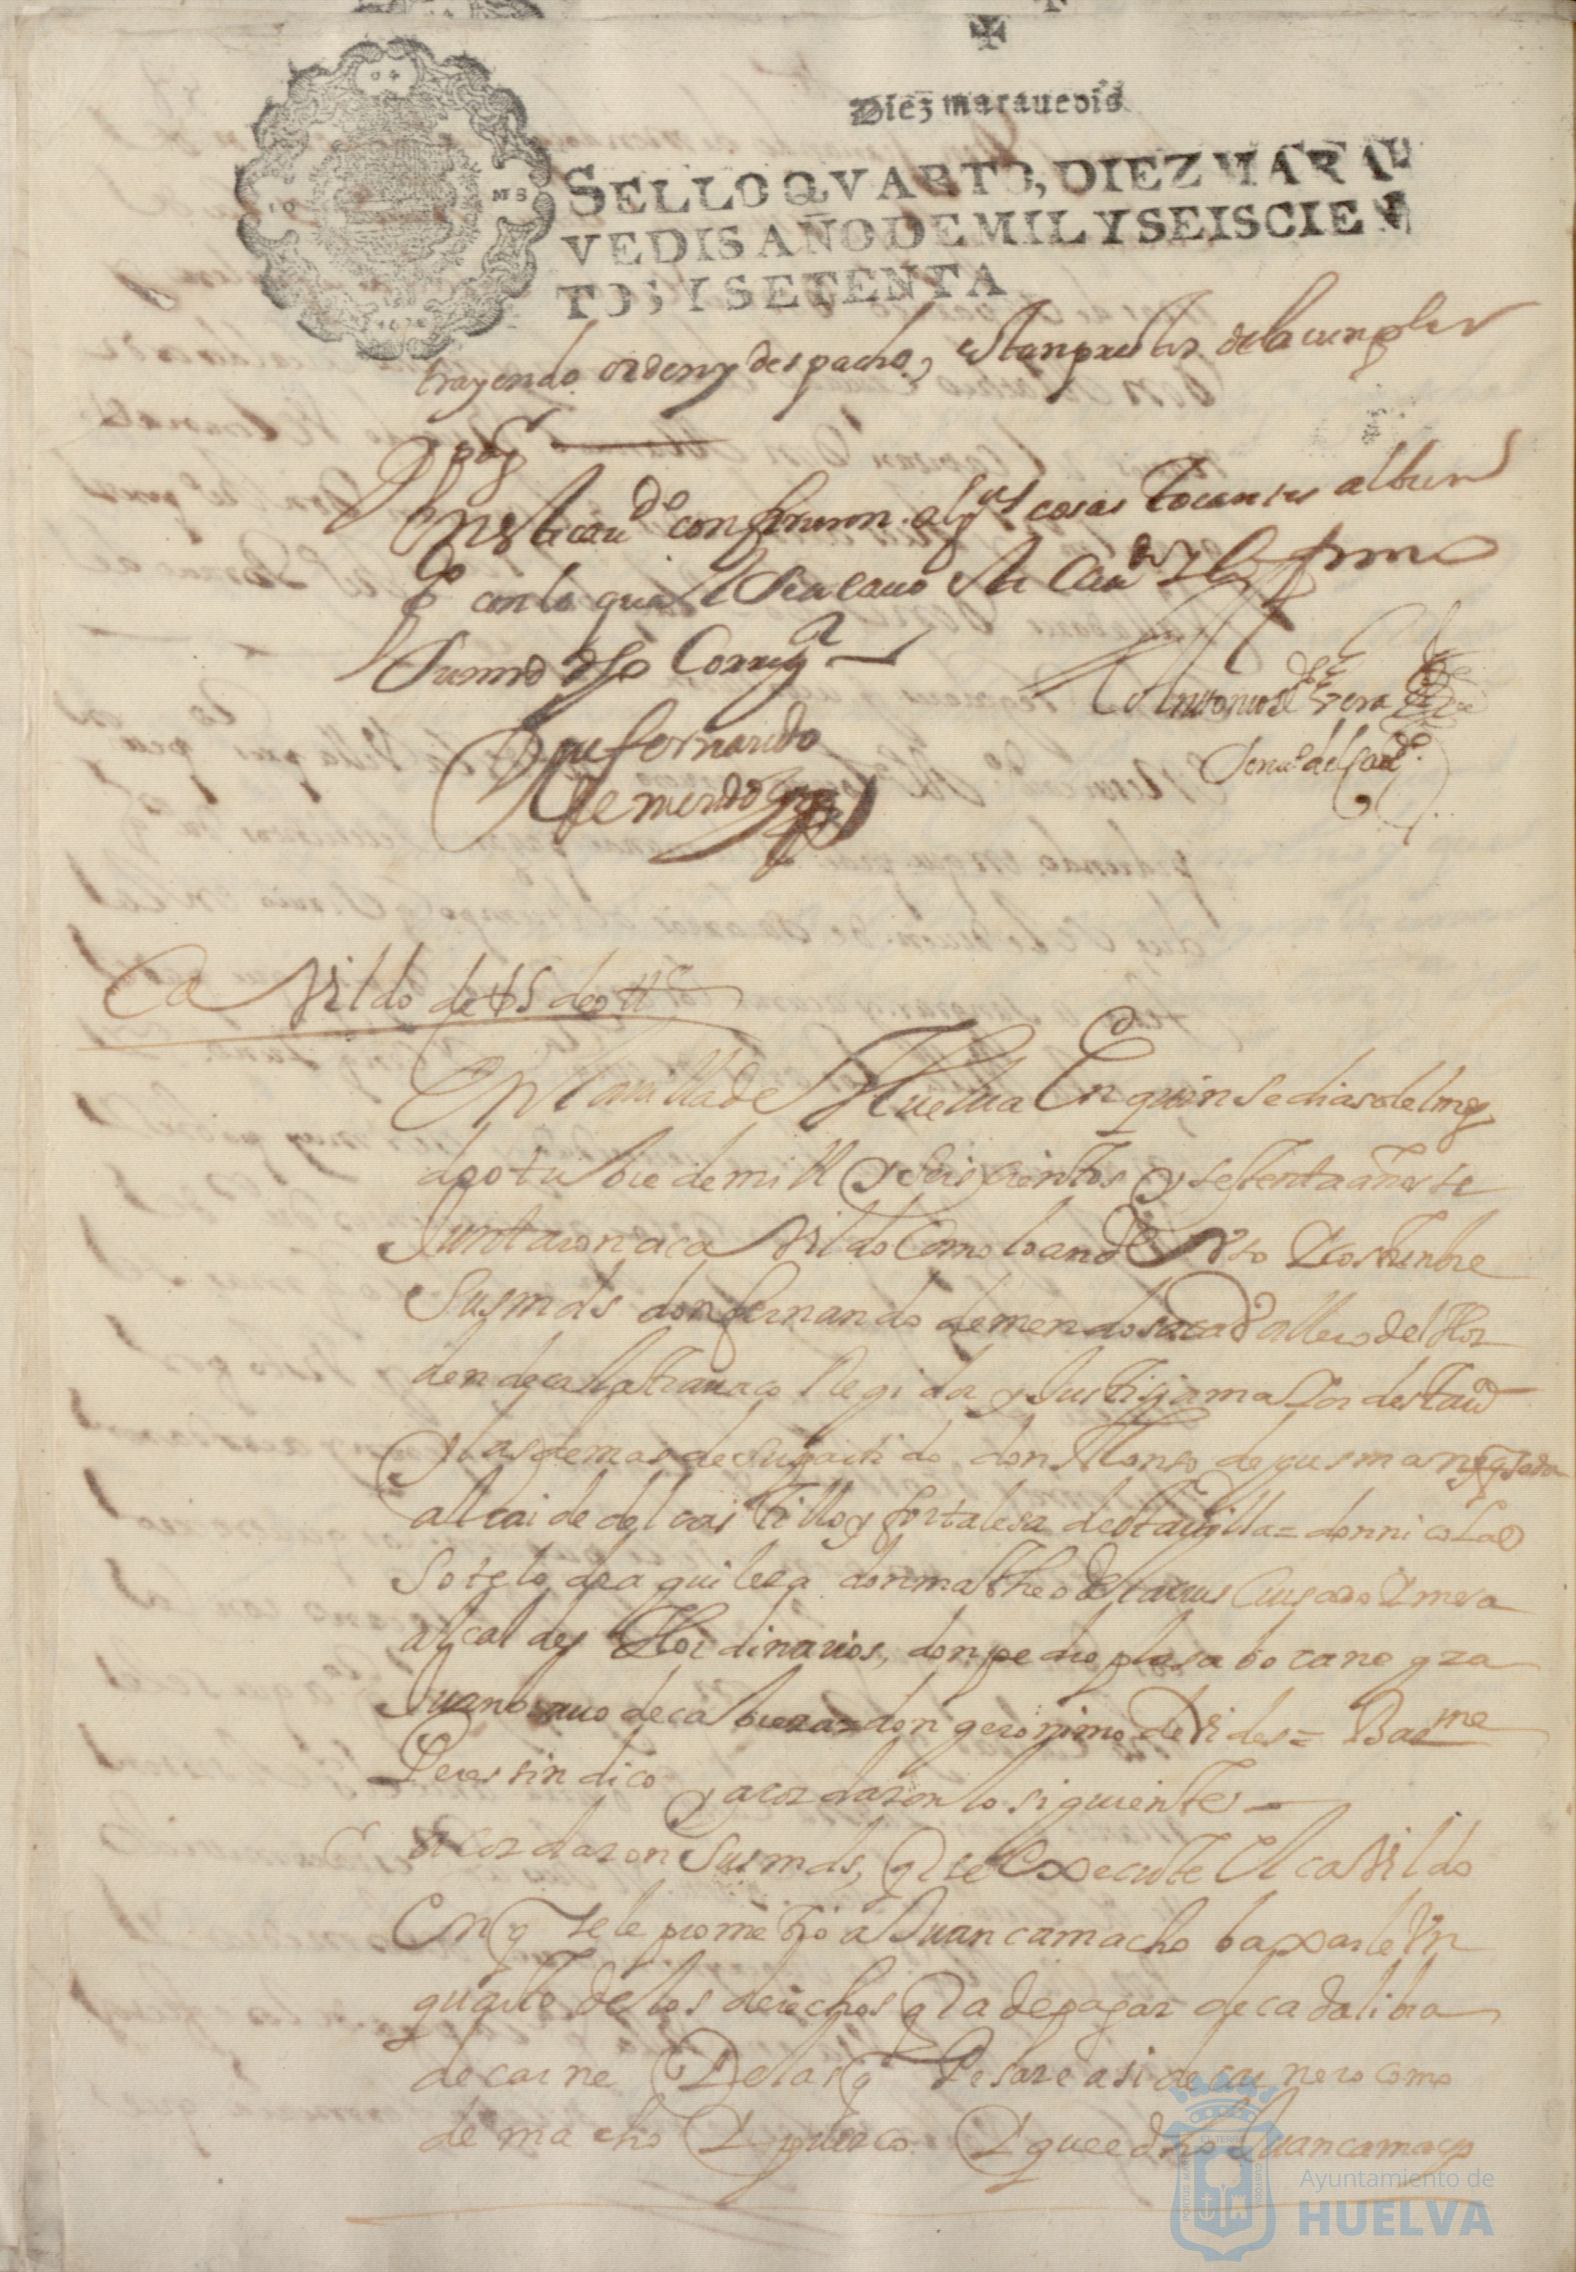 Diez maravedis
SELLO QVARTO, DIEZ MARA
VEDIS AÑO DE MIL Y SEISCIEN
TOS, Y SETENTA
trayendo orden y despacho, estan prestos de la cumplir
En este cavdo confirieron algas cosas tocantes al buen
con lo qual se acavo este Cavdo y lo firmo
su md dho Corregr
Don fernando
de mendoza
Antonio de Vera
Senº del Cavdº
Ca Vildo de 15 de otte
En la villa de Huelva En quinse dias del mes
de otubre de mill y seiscientos y setenta años se
Juntaron a ca Vildo Como lo an de Vso Y costunbre
Sus mds don fernando de mendosa cavallero del Hor
den de calatrava co Regidor y Justisia maior desta vª
y las demas de su partido don Alonso de gusman quesada
alcaide del castillo y fortalesa desta villa = don nicolas
Sotelo de aguilera don matheo de la Cruz Quisado Y mesa
alcaldes Hordinarios, don pedro plasa bocane gra
Juan bravo de cabrera = don geronimo de Vides = Barme
Peres sindico y acordaron lo siguiente
acordaron Sus mds, q se Execute El caVildo
En q se le prometio a Juan camacho baxarle Vn
quarto de los derechos q a de pagar de cada libra
de carne De las q Pesare asi de carnero como
de macho Y puerco Y que el dho Juan camacho
Ayuntamiento de
HUELVA